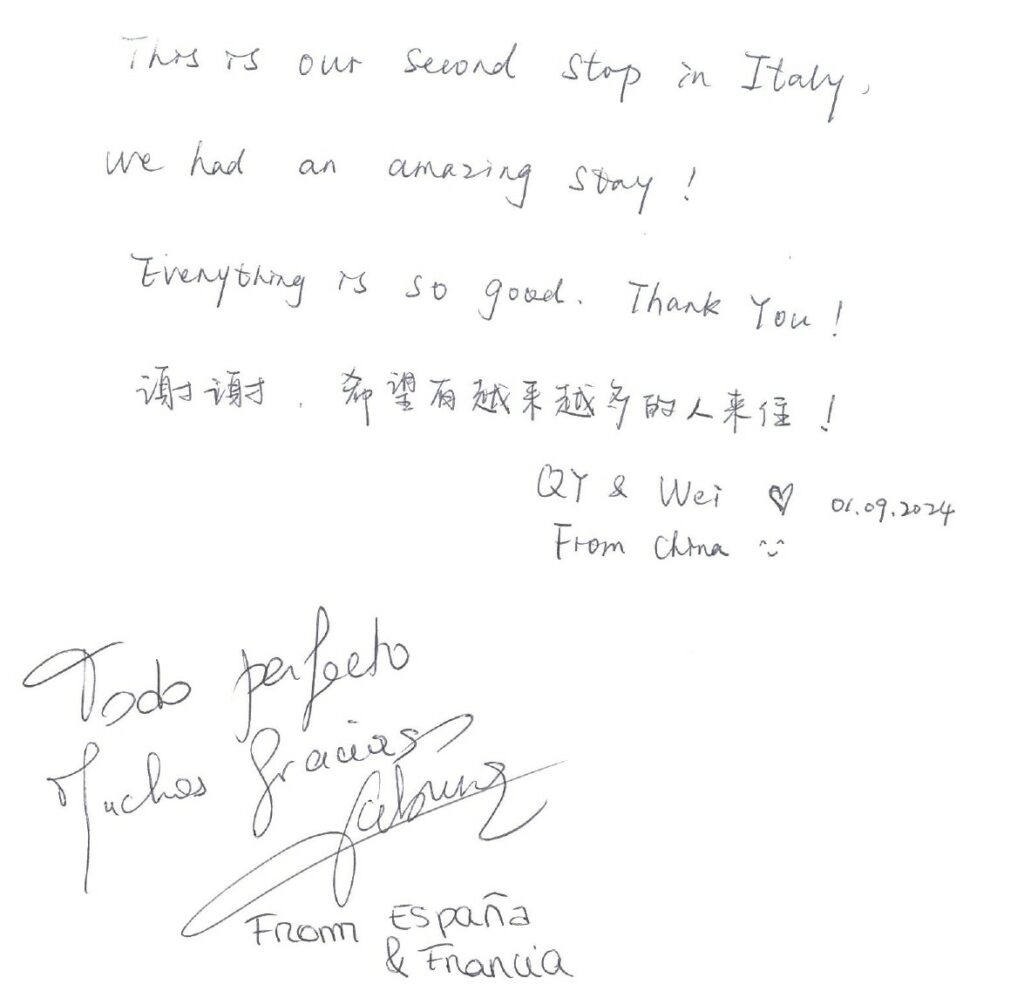 This is our second stop in Italy,
we had an amazing stay!
Everything is so good. Thank You!
谢谢, 希望有越来越多的人来住!
QY & Wei ♡ 01.09.2024
From China
Todo perfecto
Muchas Gracias
From España
& Francia